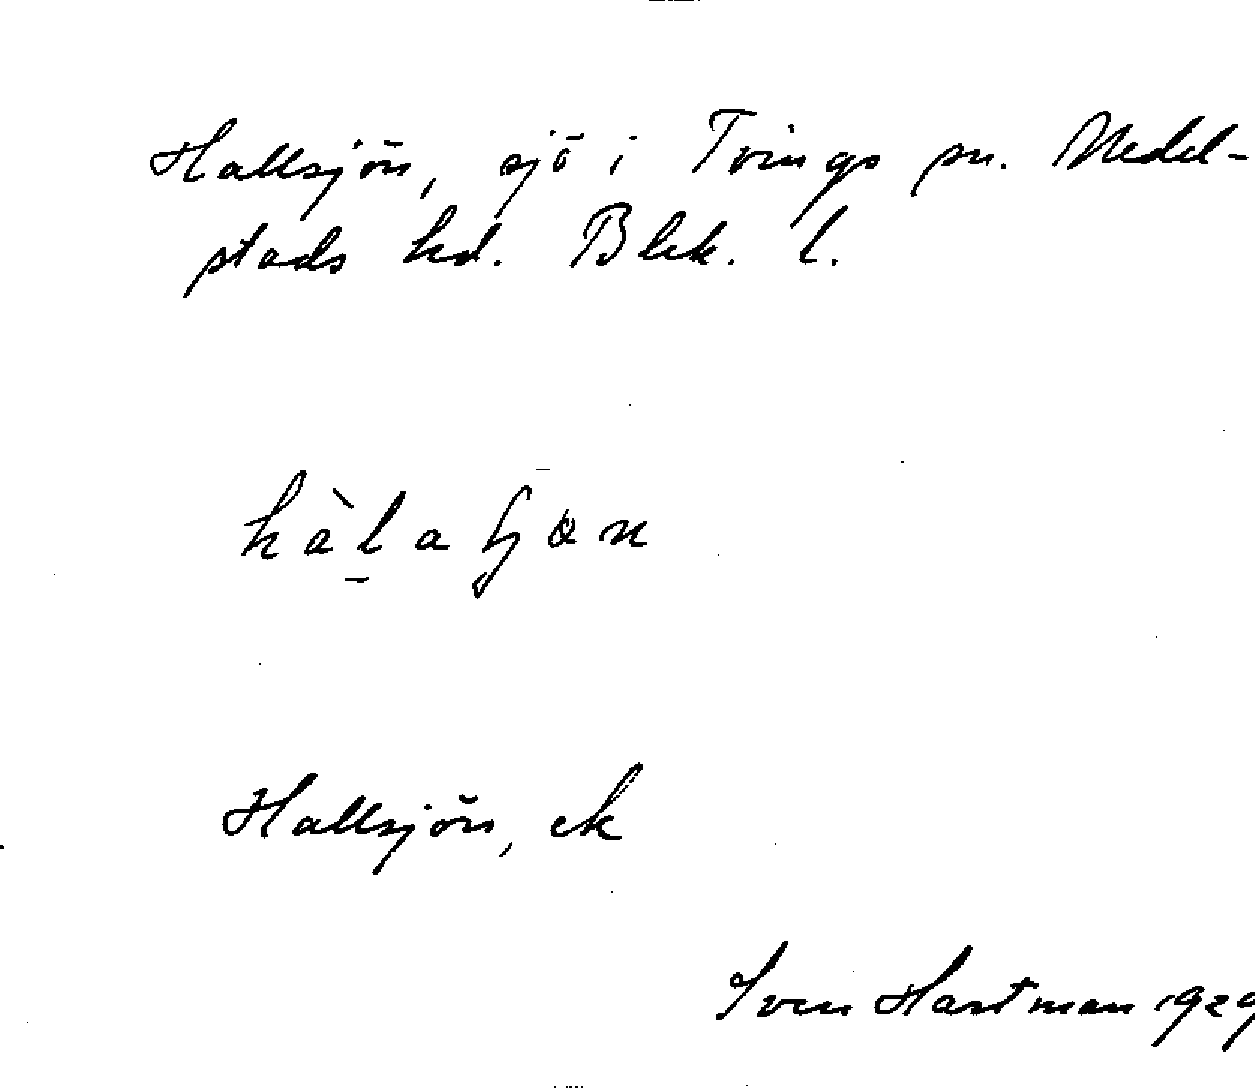 Hallsjön, sjö i Tvings sn. Medel-
stads hd. Blek. l.
Hallsjön, ek
Sven Hartman 1929